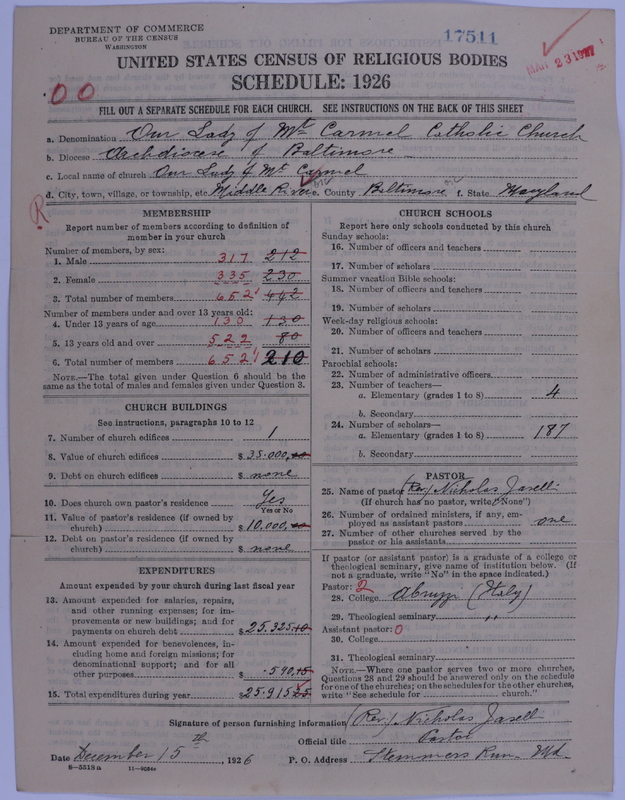 DEPARTMENT OF COMMERCE
BUREAU OF THE CENSUS
WASHINGTON
17511
MAR 23 1927
UNITED STATES CENSUS OF RELIGIOUS BODIES
SCHEDULE: 1926
00
FILL OUT A SEPARATE SCHEDULE FOR EACH CHURCH. SEE INSTRUCTIONS ON THE BACK OF THIS SHEET
a. Denomination Our Lady of Mt Carmel Catholic Church
b. Diocese Archdiocese of Baltimore
c. Local name of church Our Lady of Mt Carmel
d. City, town, village, or township, etc. Middle River e. County Baltimore f. State Maryland
R
MEMBERSHIP
Report number of members according to definition of
member in your church
Number of members, by sex:
1. Male 317 212
2. Female 335 230
3. Total number of members 652 442
Number of members under and over 13 years old:
4. Under 13 years of age 130 130
5. 13 years old and over 522 80
6. Total number of members 652 210
NOTE.—The total given under Question 6 should be the
same as the total of males and females given under Question 3.
CHURCH BUILDINGS
See instructions, paragraphs 10 to 12
7. Number of church edifices 1
8. Value of church edifices $ 35.000,00
9. Debt on church edifices $ none
10. Does church own pastor's residence Yes
Yes or No
11. Value of pastor's residence (if owned by
church) $ 10.000,00
12. Debt on pastor's residence (if owned by
church) $ none
EXPENDITURES
Amount expended by your church during last fiscal year
13. Amount expended for salaries, repairs,
and other running expenses; for im-
provements or new buildings; and for
payments on church debt $ 25.325.10
14. Amount expended for benevolences, in-
cluding home and foreign missions; for
denominational support; and for all
other purposes $ 590,15
15. Total expenditures during year $ 25.915 25
CHURCH SCHOOLS
Report here only schools conducted by this church
Sunday schools:
16. Number of officers and teachers
17. Number of scholars
Summer vacation Bible schools:
18. Number of officers and teachers
19. Number of scholars
Week-day religious schools:
20. Number of officers and teachers
21. Number of scholars
Parochial schools:
22. Number of administrative officers
23. Number of teachers—
a. Elementary (grades 1 to 8) 4
b. Secondary
24. Number of scholars—
a. Elementary (grades 1 to 8) 187
b. Secondary
PASTOR
25. Name of pastor (Rev) Nicholas Jaselli
(If church has no pastor, write "None")
26. Number of ordained ministers, if any, em-
ployed as assistant pastors one
27. Number of other churches served by the
pastor or his assistants
If pastor (or assistant pastor) is a graduate of a college or
theological seminary, give name of institution below. (If
not a graduate, write "No" in the space indicated.)
Pastor: 2
28. College Abruzzi (Italy)
29. Theological seminary "
Assistant pastor: 0
30. College
31. Theological seminary
NOTE.—Where one pastor serves two or more churches,
Questions 28 and 29 should be answered only on the schedule
for one of the churches; on the schedules for the other churches,
write "See schedule for church."
Signature of person furnishing information (Rev) Nicholas Jaselli
Official title Pastor
Date December 15th, 1926 P. O. Address Stemmers Run Md.
8—5518a 11—9304a